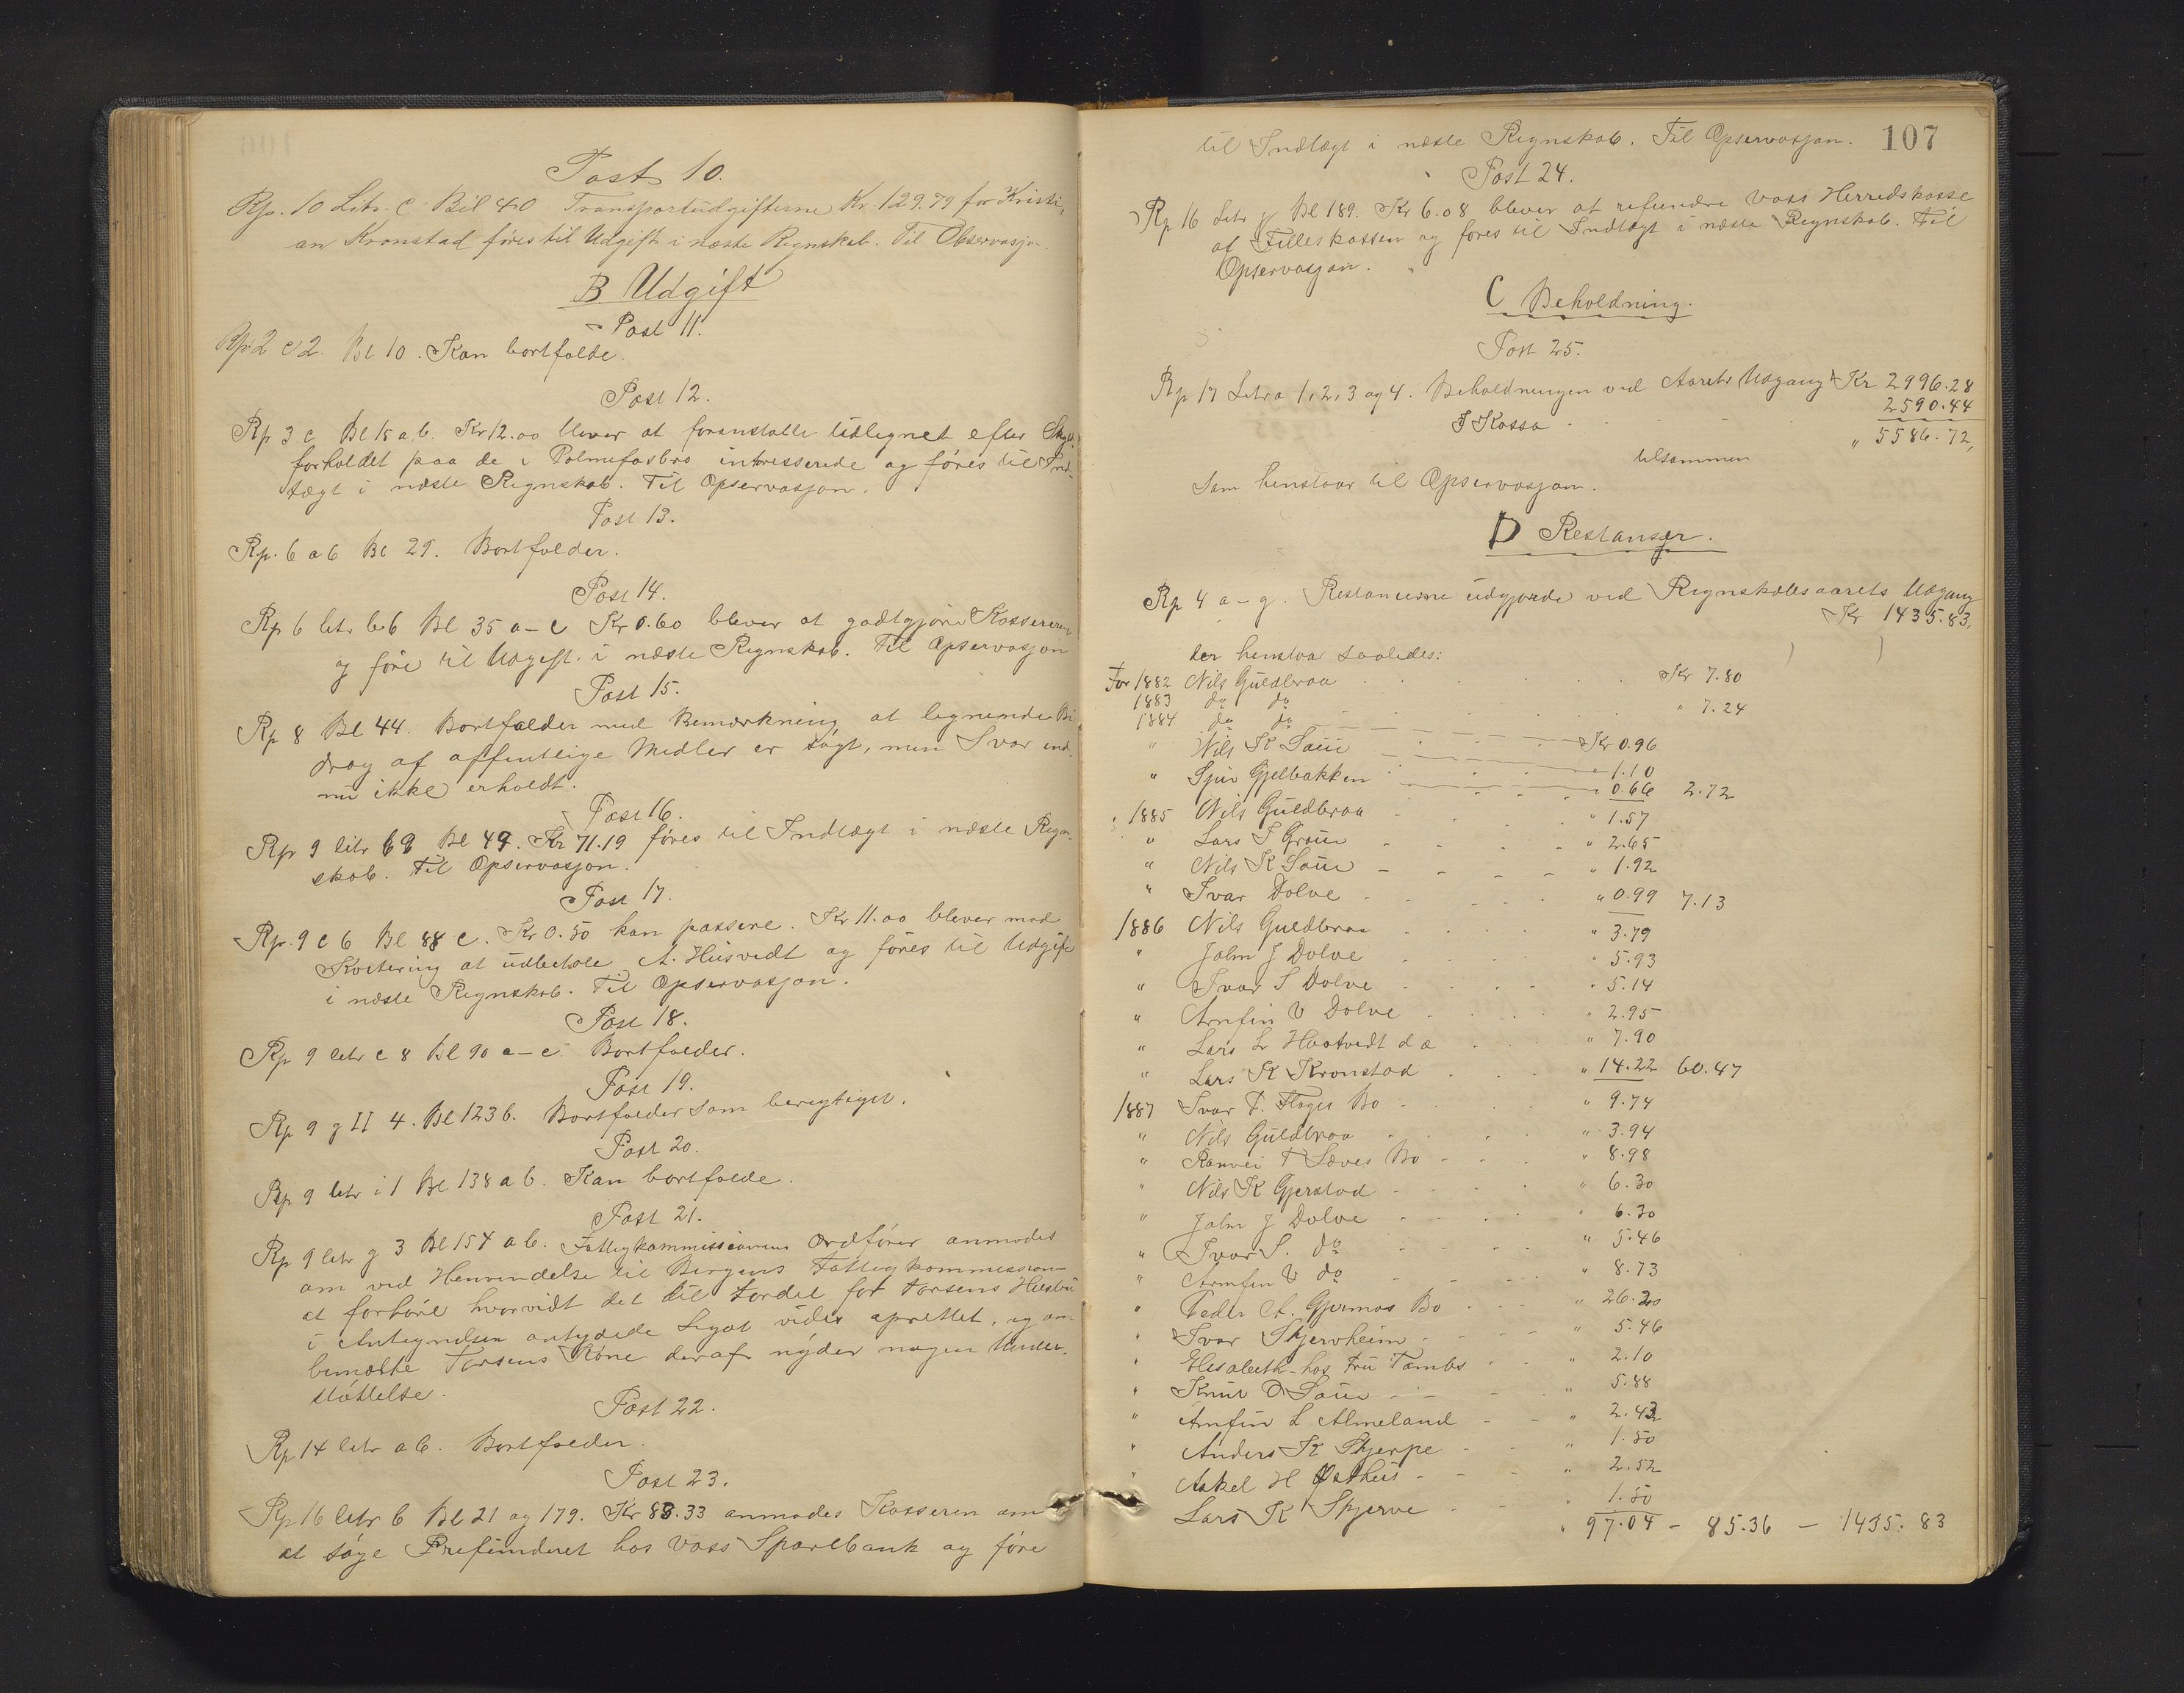 Post 10.
Rp. 10 Litr. c Bil 40 Transportudgifterne Kr. 129.79 for Kristi-
an Kronstad føres til Udgift i næste Regnskab. Til Observasjon.
B. Udgift
Post 11.
Rp 2 c 2. Bl 10. Kan bortfalde.
Post 12.
Rp 3 c Bl 15 a b. Kr 12.00 bliver at foranstalte udlignet efter Skyld-
forholdet paa de i Palmefosbro interesserede og føres til Ind-
tægt i næste Regnskab. Til Opservasjon.
Post 13.
Rp. 6 a 6 Bl 29. Bortfalder.
Post 14.
Rp 6 litr b 6 Bl 35 a - c Kr 0.60 blever at godtgjøre Kassereren
og føre til Udgift i næste Regnskab. Til Opservasjon
Post 15.
Rp 8 Bl 44. Bortfalder med Bemærkning at lignende Bi-
drag af offentlige Midler er søgt, men Svar end-
nu ikke erholdt.
Post 16.
Rp 9 litr b 8 Bl 49. Kr 71.19 føres til Indtægt i næste Regn-
skab. Til Opservasjon.
Post 17.
Rp. 9 c 6 Bl 88 c. Kr 0.50 kan passere. Kr 11.00 blever mod
Kvitering at udbetale A. Husvedt og føres til Udgift
i næste Regnskab. Til Opservasjon.
Post 18.
Rp 9 litr c 8 Bl 90 a - c Bortfalder.
Post 19.
Rp 9 g II 4. Bl 123 b. Bortfalder som berigtiget.
Post 20.
Rp 9 litr i 1 Bl 138 a b. Kan bortfalde.
Post 21.
Rp 9 litr g 3 Bl 154 a b. Fattigkommissionens Ordfører anmodes
om ved Henvendelse til Bergens Fattigkommission
at forhøre hvorvidt det til Fordel for Larsens Hustru
i Antegnelsen antydede Legat vides oprettet, og om
bemeldte Larsens Kone deraf nyder nogen Under-
støttelse.
Post 22.
Rp 14 litr a b. Bortfalder.
Post 23.
Rp 16 litr b Bl 21 og 179. Kr 83.33 anmodes Kasseren om
at søge Prefunderet hos Voss Sparebank og føre
107
til Indtægt i næste Regnskab. Til Opservasjon.
Post 24.
Rp 16 Litr g Bl 189. Kr 6.08 blever at refundere Voss Herredskasse
af Felleskassen og føres til Indtægt i næste Regnskab. Til
Opservasjon.
C Beholdning.
Post 25.
Rp 17 Litr a 1, 2, 3 og 4. Beholdningen ved Aarets Udgang Kr 2996.28
I Kassa 2590.44
tilsammen " 5586.72,
Som henstaar til Opservasjon.
D Restanser.
Rp 4 a - g. Restancerne udgjorde ved Regnskabsaarets Udgang
Kr 1435.83,
der henstaar saaledes:
For 1882 Nils Guldbraa Kr 7.80
1883 do do " 7.24
1884 do do Kr 0.96
" Nils K Saue " 1.10
" Sjur Gjelbakken " 0.66 2.72
1885 Nils Guldbraa " 1.57
" Lars T Grøue " 2.65
" Nils K Saue " 1.92
" Ivar Dolve " 0.99 7.13
1886 Nils Guldbraa " 3.79
" John J Dolve " 5.93
" Ivar S Dolve " 5.14
" Arnfin V Dolve " 2.95
" Lars L Haatvedt d æ " 7.90
" Lars K Kronstad " 14.22 60.47
1887 Ivar T. Flages Bo " 9.74
" Nils Guldbraa " 3.94
" Ranvei T Sæves Bo " 8.98
" Nils K Gjerstad " 6.30
" John J Dolve " 6.30
" Ivar S. do " 5.46
" Arnfin V do " 8.73
" Peder A. Gjermos Bo " 26.20
" Ivar Skjervheim " 5.46
" Elisabeth hos Fru Tambs " 2.10
" Knut O Saue " 5.88
" Arnfin L Almeland " 2.42
" Anders K Skjerpe " 1.50
" Askel H Østhus " 2.52
Lars K Skjerve " 1.50
" 97.04 - 85.36 - 1435.83